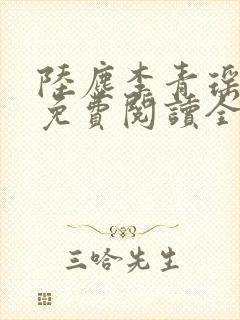 陸塵李青瑤
免費閱讀全
三哈先生